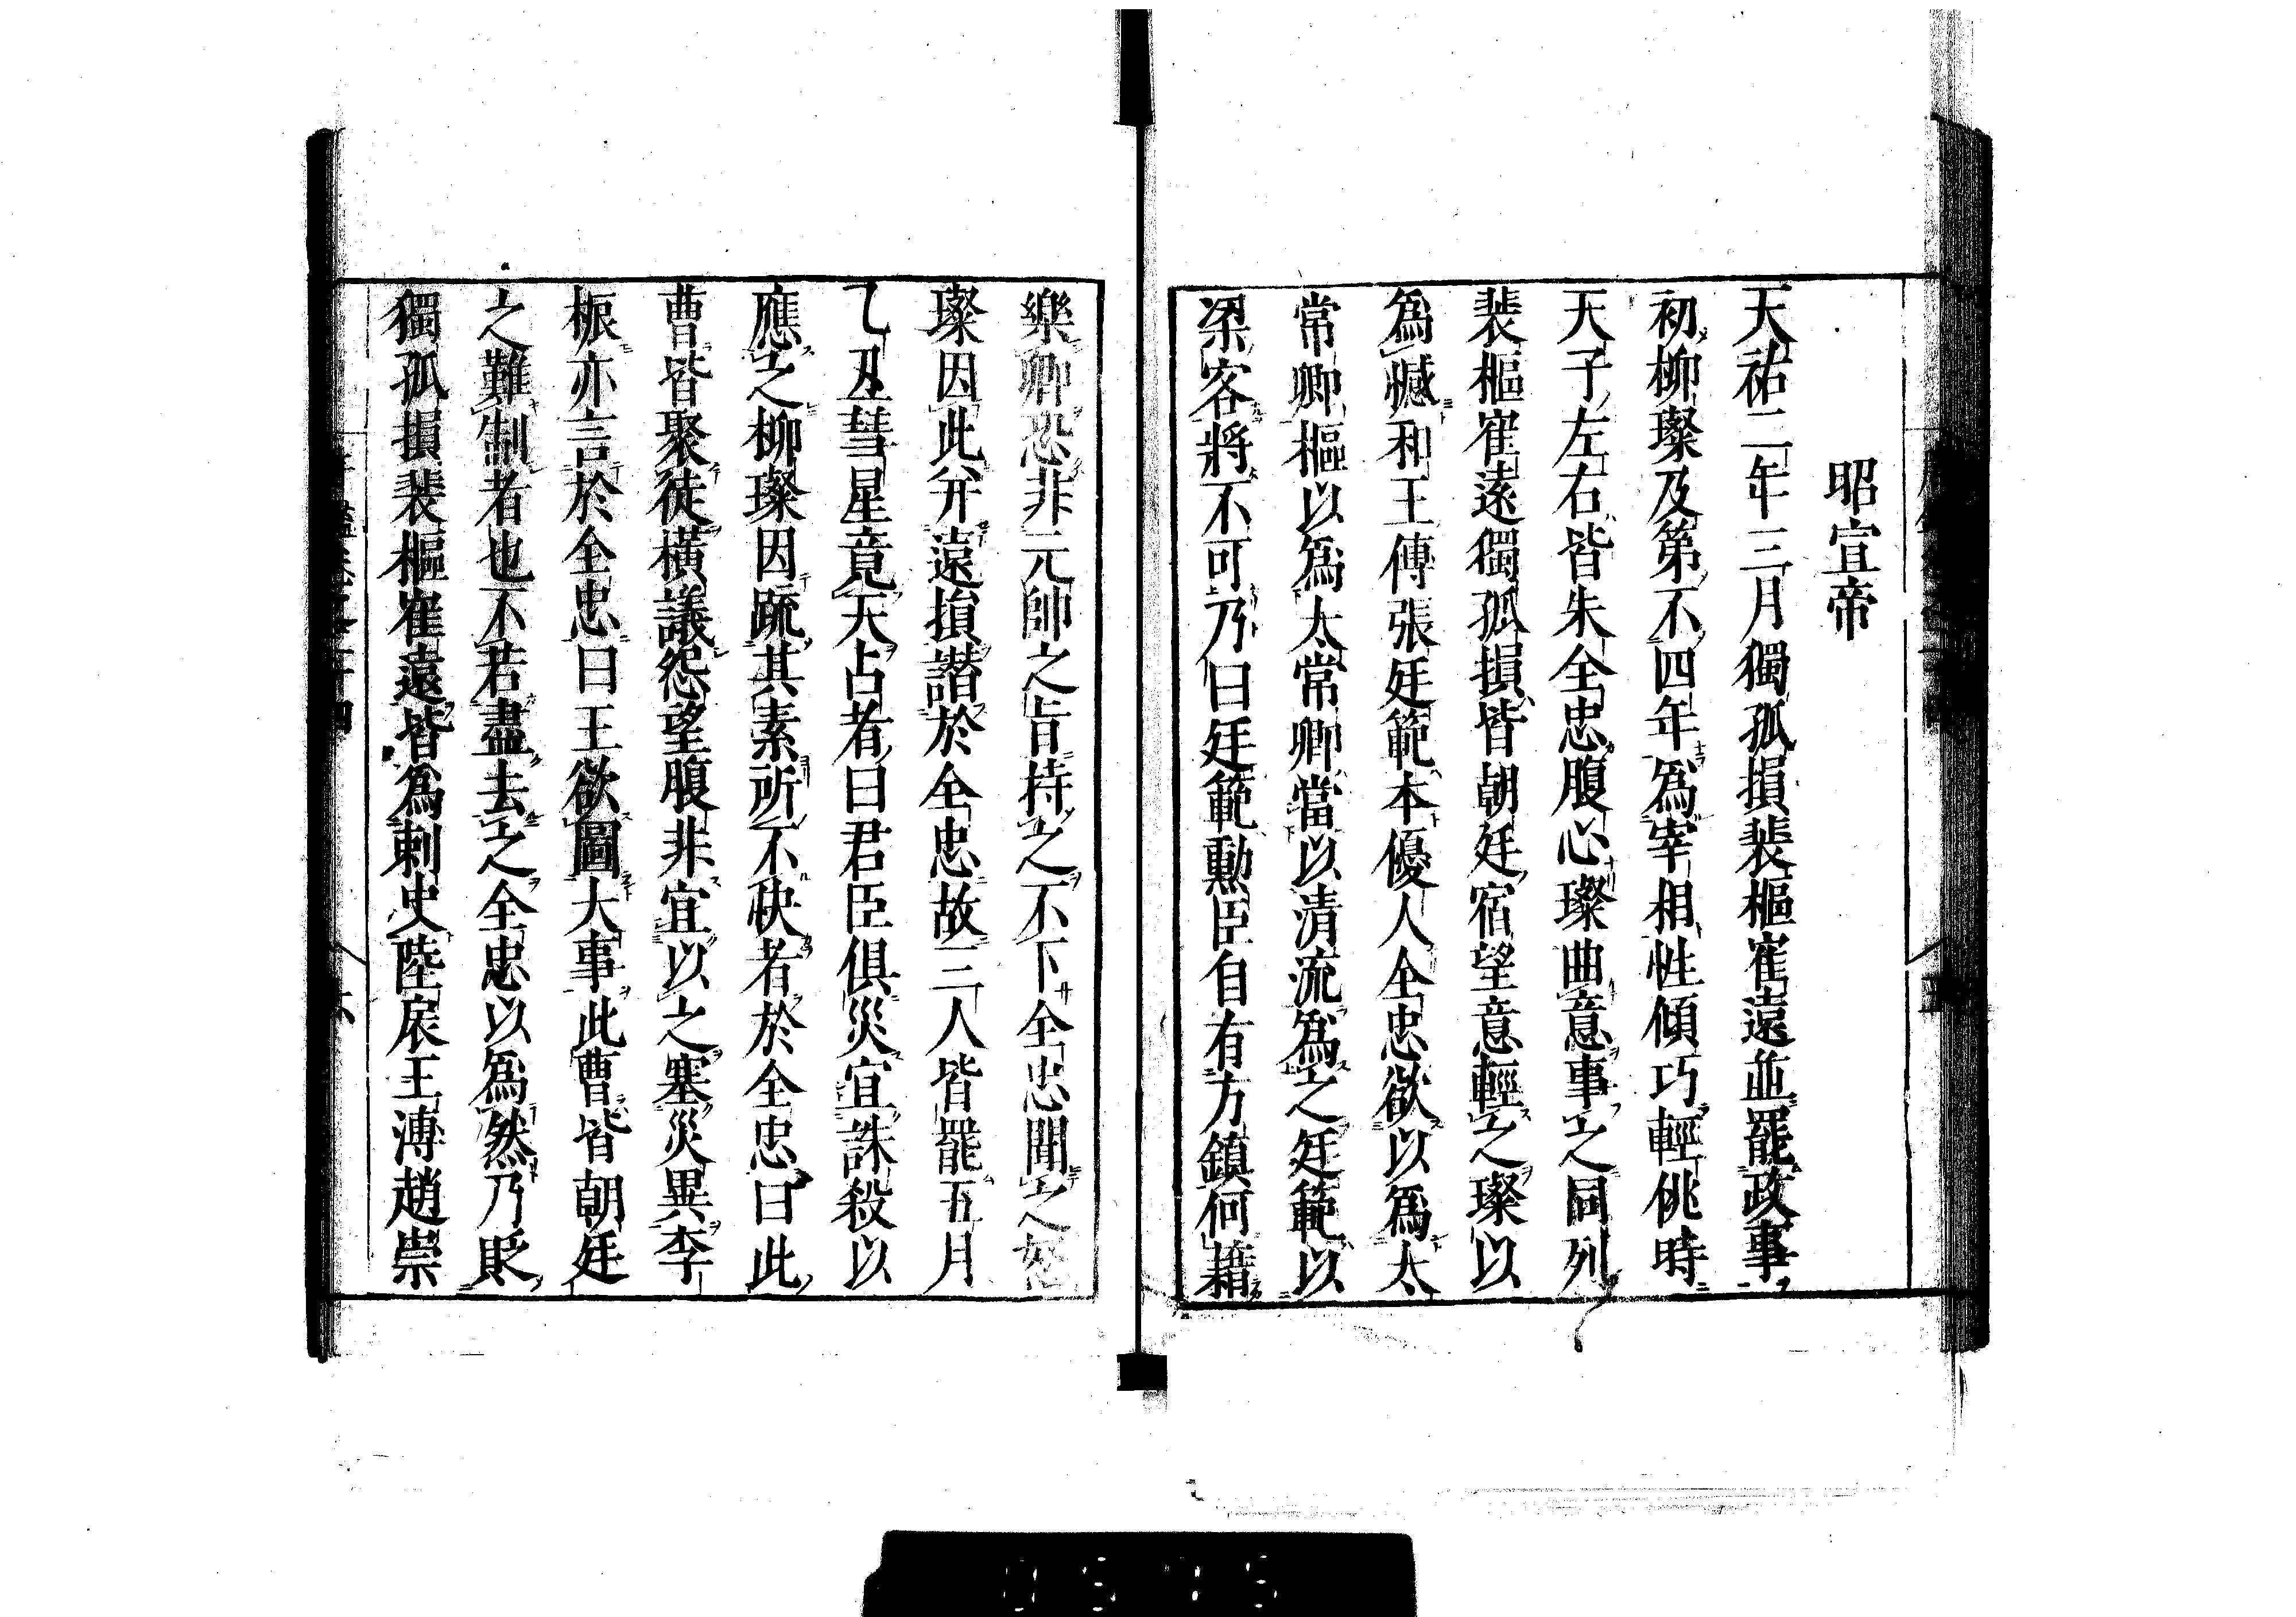 昭宣帝
天祐二年三月獨孤損裴樞崔遠並罷政事
初柳璨及第不四年爲宰相性傾巧輕佻時
天子左右皆朱全忠腹心璨曲意事之同列
裴樞崔遠獨孤損皆朝廷宿望意輕之璨以
爲憾和王傅張廷範本優人全忠欲以爲太
常卿樞以爲太常卿當以清流爲之廷範以
梁客將不可乃曰廷範勳臣自有方鎮何藉
樂卿恐非元帥之旨持之不下全忠聞之怒
璨因此并遠損譖於全忠故三人皆罷五月
乙丑彗星竟天占者曰君臣俱災宜誅殺以
應之柳璨因疏其素所不快者於全忠曰此
曹皆聚徒橫議怨望腹非宜以之塞災異李
振亦言於全忠曰王欲圖大事此曹皆朝廷
之難制者也不若盡去之全忠以爲然乃貶
獨孤損裴樞崔遠皆爲刺史陸扆王溥趙崇